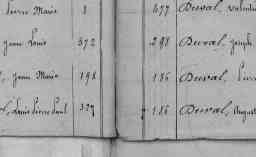 Pierre Marie 8
Jean Louis 372
Jean Marie 198
Louis Pierre Paul 327
677 Duval, Valentin
298 Duval, Joseph
186 Duval, Pierre
186 Duval, August